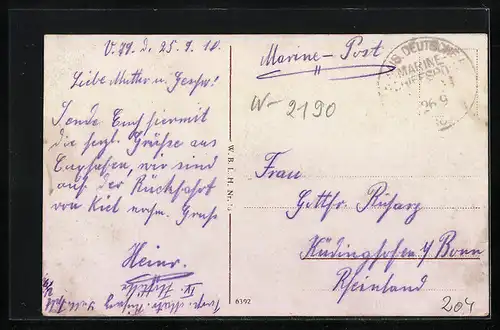 V. 79. d. 25. 9. 10.
Liebe Mutter u. Geschw!
Sende Euch hiermit
die herzl. Grüße aus
Cuxhafen, wir sind
auf der Rückfahrt
von Kiel nchm. Gruß
Heinr.
Marine-Post
DEUTSCHE
MARINE-
SCHIFFSPOST
26 9
W-2190
W.B.L.H. Nr.
Frau
Gottfr. Rüharz
Küdinghofen b/ Bonn
Rheinland
6392
204